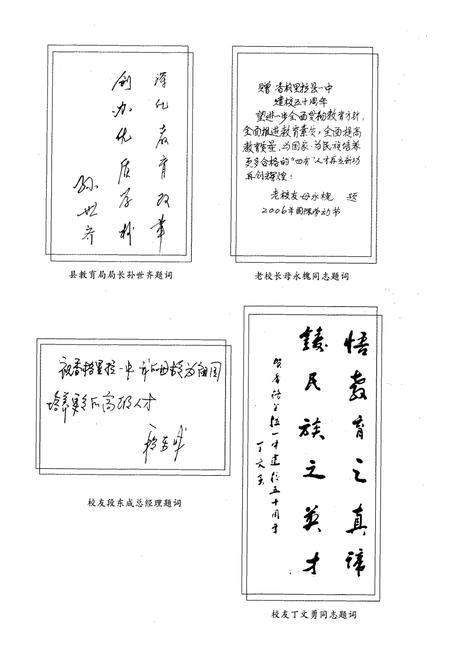 深化教育改革
创办优质学校
孙世齐
县教育局局长孙世齐题词
赠 香格里拉县一中
建校五十周年
望进一步全面贯彻教育方针,
全面推进教育素质,全面提高
教育质量,为国家、为民族培养
更多合格的“四有”人才再立新功
再创辉煌!
老校友 母永槐 题
2006年国际劳动节
老校长母永槐同志题词
祝香格里拉一中
为祖国
培养更多的高硕人才
段东成
校友段东成总经理题词
悟教育之真谛
铸民族之英才
贺香格里拉一中建校五十周年
丁文勇
校友丁文勇同志题词